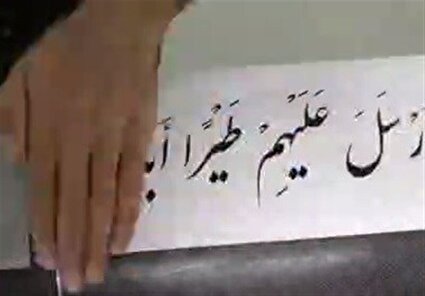 رْسَلَ عَلَيْهِمْ طَيْرًا أَبا